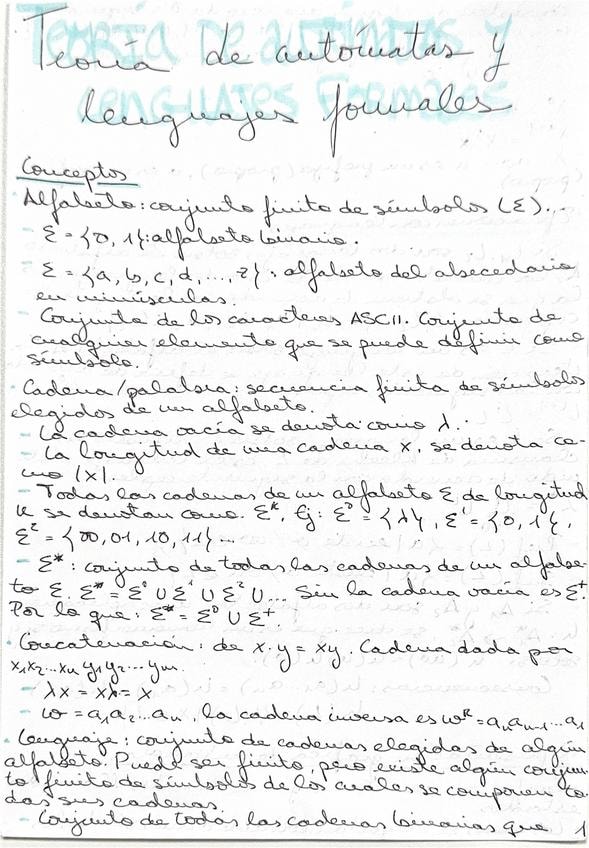 Teoría de autómatas y
lenguajes formales
Conceptos
- Alfabeto: conjunto finito de símbolos (Σ).
- Σ = {0, 1}: alfabeto binario.
- Σ = {a, b, c, d, ..., z}: alfabeto del abecedario
en minúsculas.
- Conjunto de los caracteres ASCII. Conjunto de
cualquier elemento que se puede definir como
símbolo.
· Cadena/palabra: secuencia finita de símbolos
elegidos de un alfabeto.
- La cadena vacía se denota como λ.
- La longitud de una cadena x, se denota co-
mo |x|.
- Todas las cadenas de un alfabeto Σ de longitud
k se denotan como Σᵏ. Ej: Σ⁰ = {λ}, Σ¹ = {0, 1},
Σ² = {00, 01, 10, 11}...
- Σ*: conjunto de todas las cadenas de un alfabe-
to Σ. Σ* = Σ⁰ ∪ Σ¹ ∪ Σ² ∪ ... Sin la cadena vacía es Σ⁺.
Por lo que: Σ* = Σ⁰ ∪ Σ⁺
· Concatenación: de x·y = xy. Cadena dada por
x₁x₂...xₙ y₁y₂...yₘ.
- λx = xλ = x
- w = a₁a₂...aₙ, la cadena inversa es wᴿ = aₙaₙ₋₁...a₁
· Lenguaje: conjunto de cadenas elegidas de algún
alfabeto. Puede ser finito, pero existe algún conjun-
to finito de símbolos de los cuales se componen to-
das sus cadenas.
- Conjunto de todas las cadenas binarias que
1